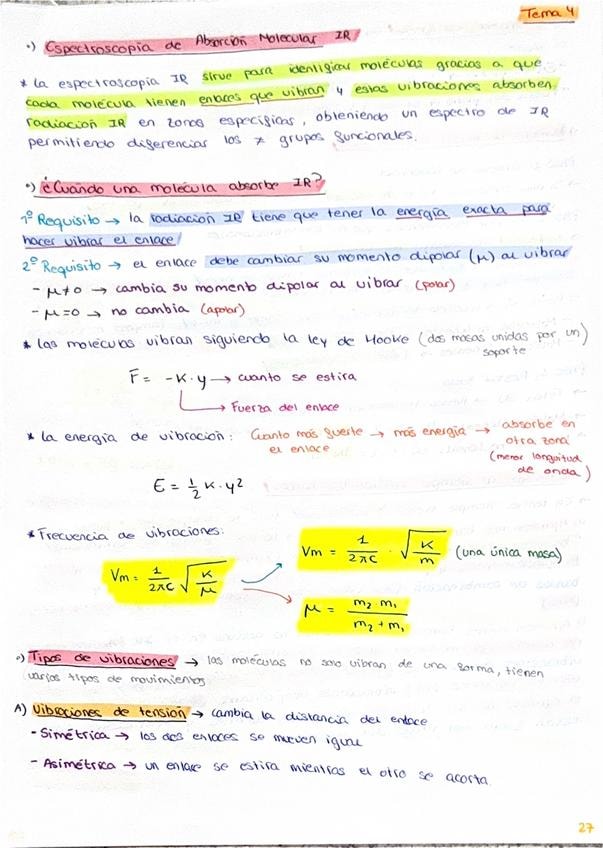 Tema 4
•) Espectroscopía de Absorción Molecular IR
* La espectroscopía IR sirve para identificar moléculas gracias a que
cada molécula tienen enlaces que vibran y estas vibraciones absorben
radiación IR en zonas específicas, obteniendo un espectro de IR
permitiendo diferenciar los ≠ grupos funcionales.
•) ¿Cuándo una molécula absorbe IR?
1º Requisito → la radiación IR tiene que tener la energía exacta para
hacer vibrar el enlace
2º Requisito → el enlace debe cambiar su momento dipolar (μ) al vibrar
- μ≠0 → cambia su momento dipolar al vibrar (polar)
- μ=0 → no cambia (apolar)
* Las moléculas vibran siguiendo la ley de Hooke (dos masas unidas por un
soporte)
F = -K·y → cuanto se estira
→ Fuerza del enlace
* La energía de vibración: Cuanto más fuerte → más energía → absorbe en
el enlace otra zona
(menor longitud
de onda)
E = 1/2 K·y²
* Frecuencia de vibraciones:
Vm = 1/2πc · √K/m (una única masa)
Vm = 1/2πc √K/μ
μ = m₂·m₁/m₂+m₁
•) Tipos de vibraciones → las moléculas no solo vibran de una forma, tienen
varios tipos de movimientos
A) Vibraciones de tensión → cambia la distancia del enlace
- Simétrica → los dos enlaces se mueven igual
- Asimétrica → un enlace se estira mientras el otro se acorta.
27